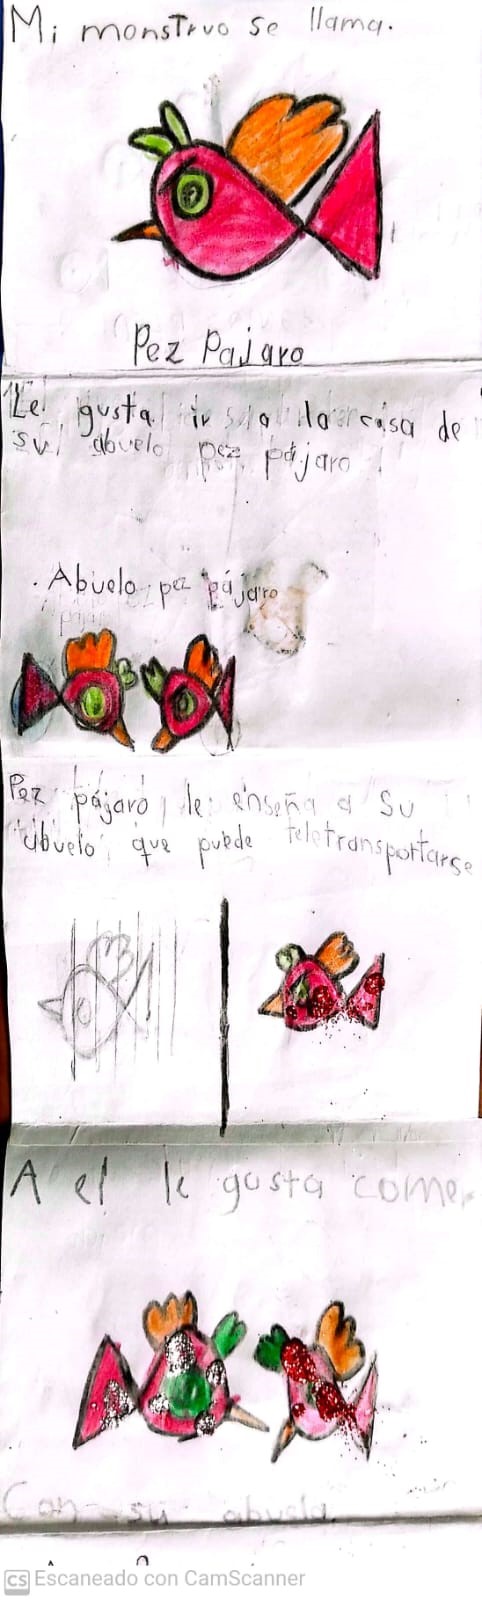 Mi monstruo se llama.
Pez Pajaro
Le gusta ir a la casa de
su abuelo pez pájaro
Abuelo pez pájaro
Pez pájaro le enseña a su
abuelo que puede teletransportarse
A el le gusta comer
Con su abuela
CS Escaneado con CamScanner